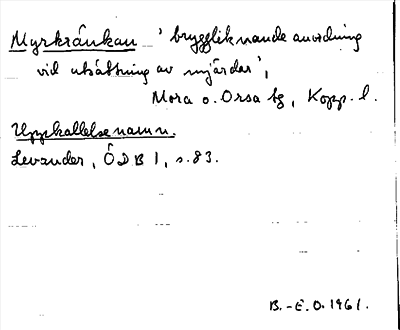 Myrkränkan 'bryggliknande anordning
vid utsättning av mjärdar',
Mora o. Orsa tg, Kopp. l.
Uppkallelsenamn.
Levander, ÖDB I, s. 83.
B.-E. O. 1961.